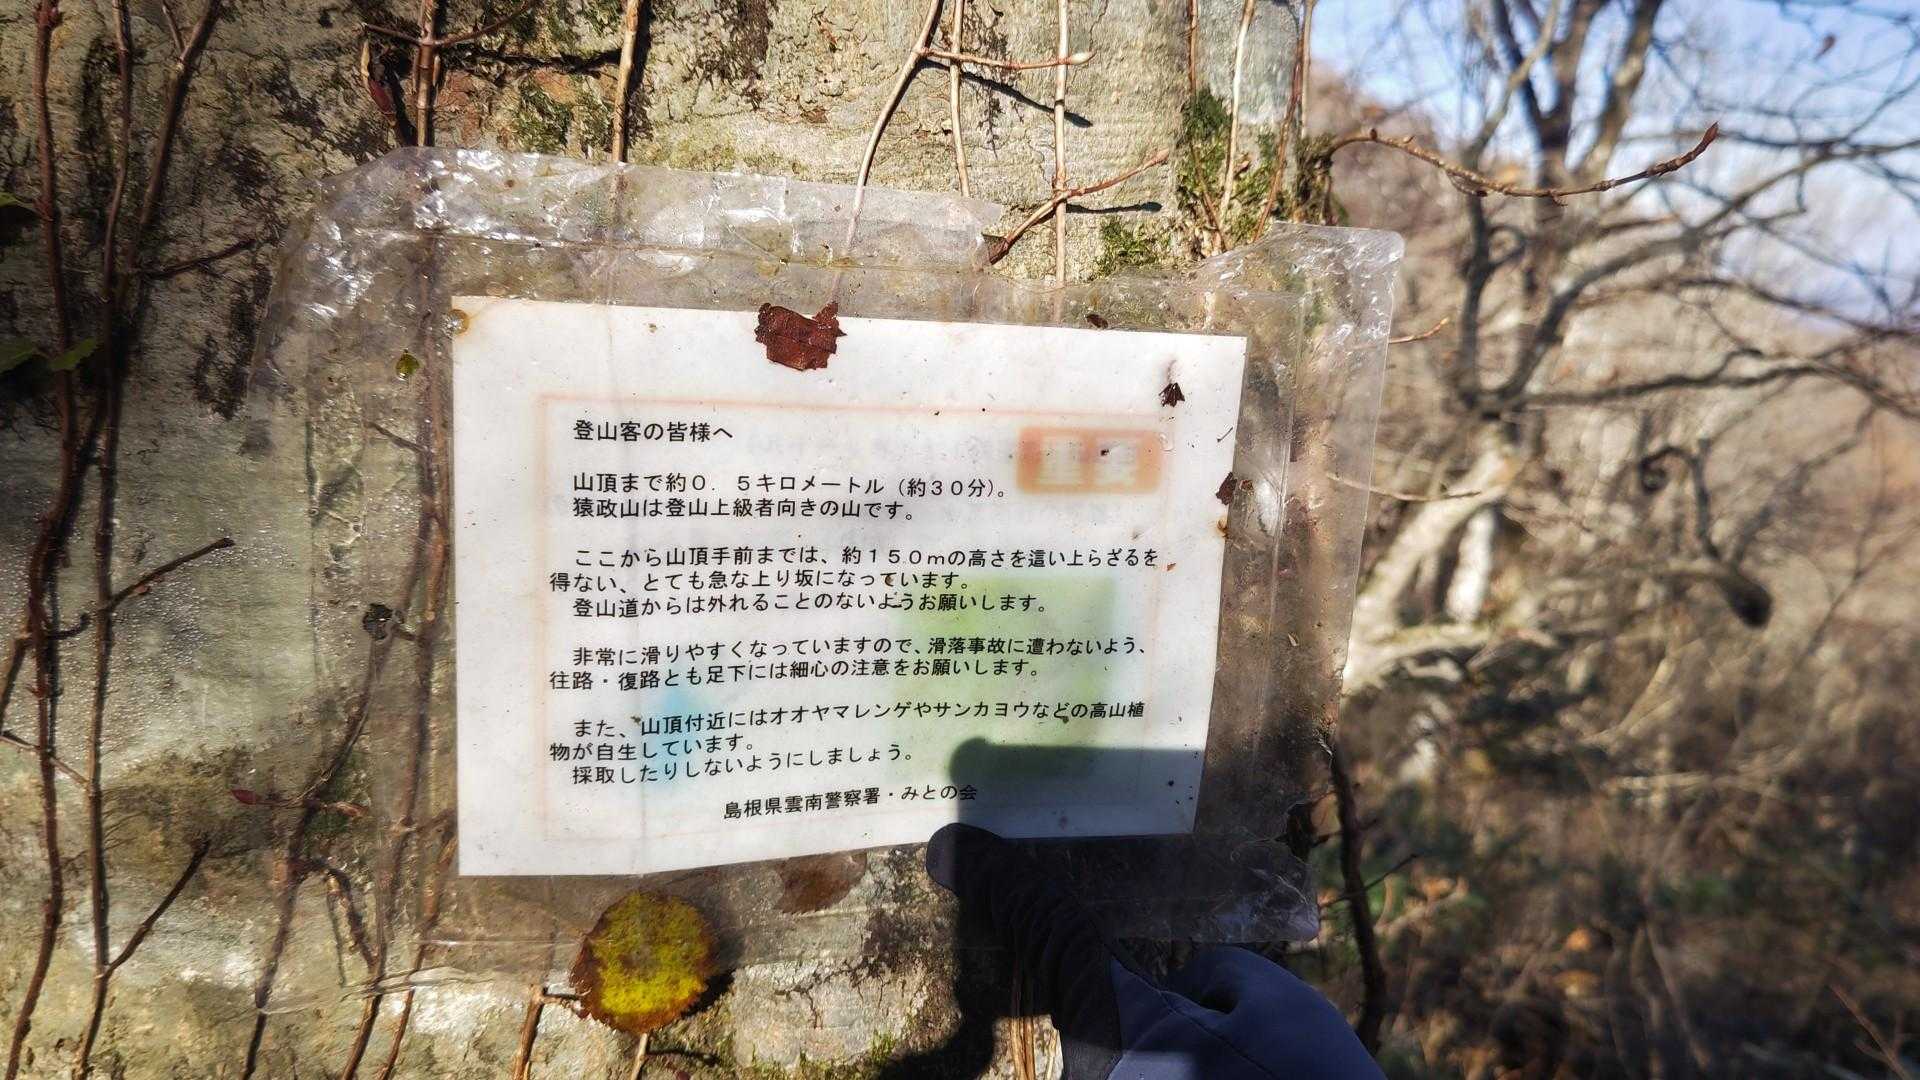 登山客の皆様へ
山頂まで約０．５キロメートル（約３０分）。
猿政山は登山上級者向きの山です。
ここから山頂手前までは、約１５０ｍの高さを這い上らざるを
得ない、とても急な上り坂になっています。
登山道からは外れることのないようお願いします。
非常に滑りやすくなっていますので、滑落事故に遭わないよう、
往路・復路とも足下には細心の注意をお願いします。
また、山頂付近にはオオヤマレンゲやサンカヨウなどの高山植
物が自生しています。
採取したりしないようにしましょう。
島根県雲南警察署・みとの会